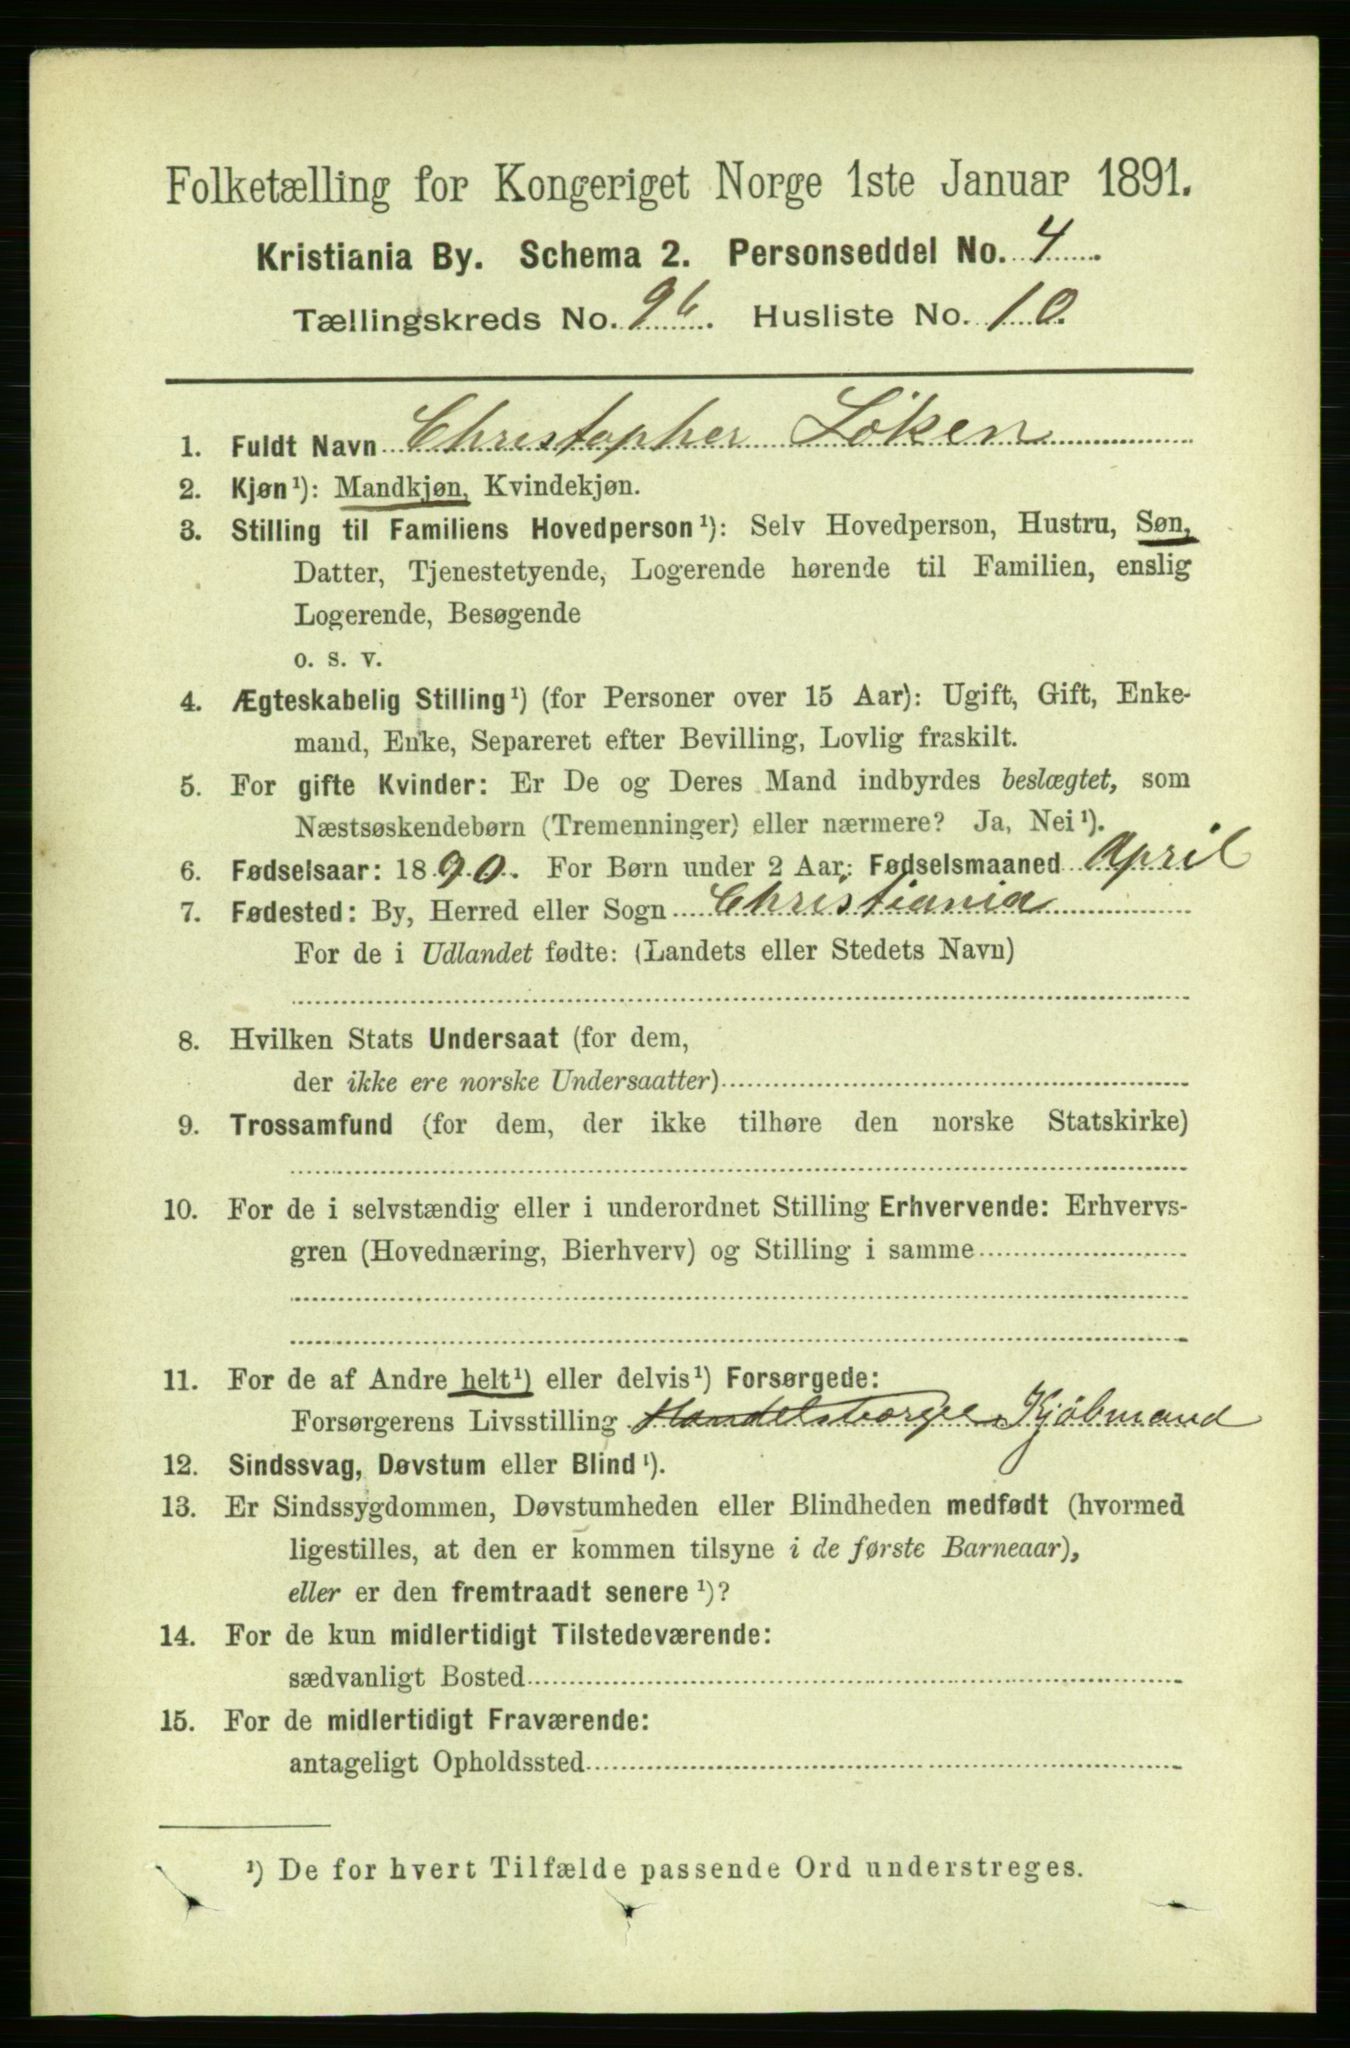 Folketælling for Kongeriget Norge 1ste Januar 1891.
Kristiania By. Schema 2. Personseddel No. 4
Tællingskreds No. 96. Husliste No. 10.
1. Fuldt Navn Christopher Löken
2. Kjøn¹): Mandkjøn, Kvindekjøn.
3. Stilling til Familiens Hovedperson¹): Selv Hovedperson, Hustru, Søn,
Datter, Tjenestetyende, Logerende hørende til Familien, enslig
Logerende, Besøgende
o. s. v.
4. Ægteskabelig Stilling¹) (for Personer over 15 Aar): Ugift, Gift, Enke-
mand, Enke, Separeret efter Bevilling, Lovlig fraskilt.
5. For gifte Kvinder: Er De og Deres Mand indbyrdes beslægtet, som
Næstsøskendebørn (Tremenninger) eller nærmere? Ja, Nei¹).
6. Fødselsaar: 1890. For Børn under 2 Aar: Fødselsmaaned April
7. Fødested: By, Herred eller Sogn Christiania
For de i Udlandet fødte: (Landets eller Stedets Navn)
8. Hvilken Stats Undersaat (for dem,
der ikke ere norske Undersaatter)
9. Trossamfund (for dem, der ikke tilhøre den norske Statskirke)
10. For de i selvstændig eller i underordnet Stilling Erhvervende: Erhvervs-
gren (Hovednæring, Bierhverv) og Stilling i samme
11. For de af Andre helt¹) eller delvis¹) Forsørgede:
Forsørgerens Livsstilling Kjöbmand
12. Sindssvag, Døvstum eller Blind¹).
13. Er Sindssygdommen, Døvstumheden eller Blindheden medfødt (hvormed
ligestilles, at den er kommen tilsyne i de første Barneaar),
eller er den fremtraadt senere¹)?
14. For de kun midlertidigt Tilstedeværende:
sædvanligt Bosted
15. For de midlertidigt Fraværende:
antageligt Opholdssted
¹) De for hvert Tilfælde passende Ord understreges.